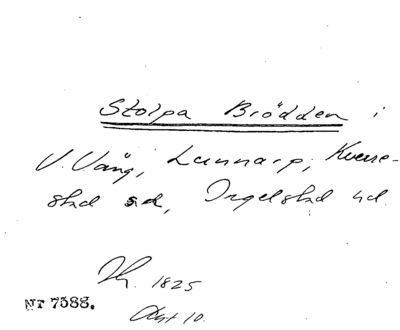 Stolpa Brödden i
V. Vång, Lunnarp, Kverre-
stad sd, Ingelstad hd.
Th. 1825
Akt 10.
NT 7588.